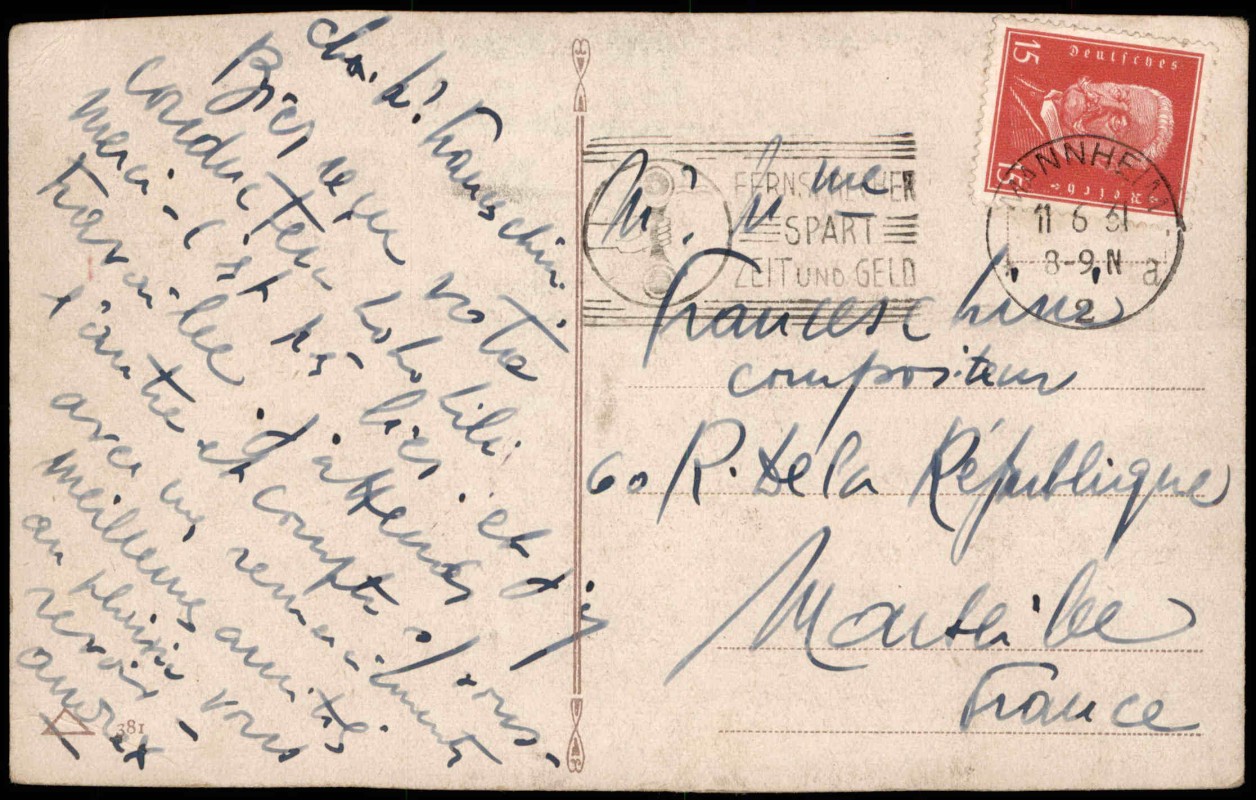 cher Mr Franceschini
Bien reçu votre
conducteur
merci - c'est très bien et j'y
travaille. J'attends
l'autre et compte dessus -
avec mes remerciements
meilleures amitiés
au plaisir vous
revoir -
381
M. M me
Franceschini
compositeur
60 R. de la République
Marseille
France
FERNSPRECHER
SPART
ZEIT UND GELD
Deutsches
Reich
15
15
MANNHEIM
11 6 31
8-9 N
a
2